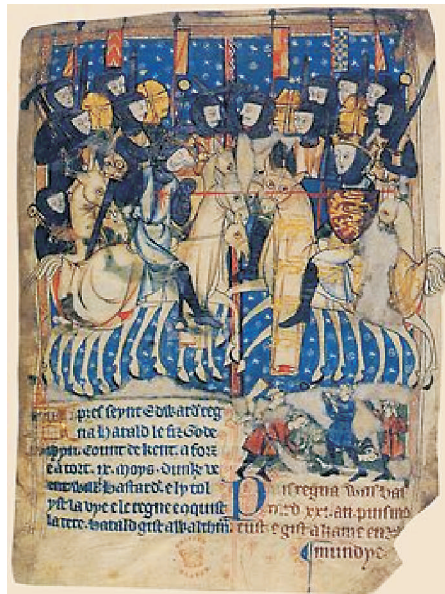 pres seynt Edward reg
na Harald le fiz Gode
wyn. Count de kent. a forz
e a tort. ix. moys. dunk ve
Bastard. e ly tol
yst la vye e le regne e conquist
la tere. Harald gist a Waltham.
Puis regna Will bas
tard xxi. an. puis mo
rust e gist a
mundye